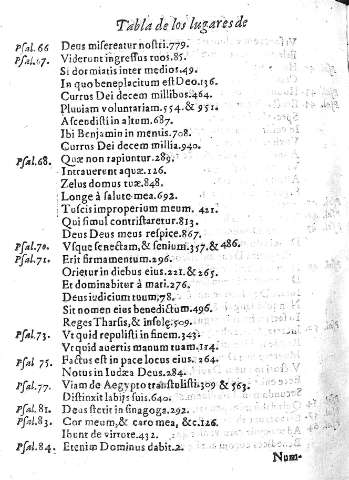 Tabla de los lugares de
Psal.66 Deus misereatur nostri.779.
Psal.67. Viderunt ingressus tuos.85.
Si dormiatis inter medios.49.
In quo beneplacitum est Deo.136.
Currus Dei decem millibus.464.
Pluuiam voluntariam.554.& 951.
Ascendisti in altum.687.
Ibi Benjamin in mentis.708.
Currus Dei decem millia.940.
Psal.68. Quæ non rapiuntur.289.
Intrauerunt aquæ.126.
Zelus domus tuæ.848.
Longè à salute mea.692.
Tuscis improperium meum. 421.
Qui simul contristaretur.813.
Deus Deus meus respice.867.
Psal.70. Vsque senectam,& senium.357.& 486.
Psal.71. Erit firmamentum.296.
Orietur in diebus eius.221.& 265.
Et dominabitur à mari.276.
Deus iudicium tuum,78.
Sit nomen eius benedictum.496.
Reges Tharsis, & insolę.509.
Psal.73. Vt quid repulisti in finem.343.
Vt quid auertis manum tuam.114.
Psal 75. Factus est in pace locus eius. 264.
Notus in Iudæa Deus.284.
Psal.77. Viam de Aegypto transtulisti.309 & 563.
Distinxit labijs suis.640.
Psal.81. Deus stetit in sinagoga.292.
Psal.83. Cor meum,& caro mea, &c.126.
Ibunt de virtute.432.
Psal.84. Etenim Dominus dabit.2.
Num-